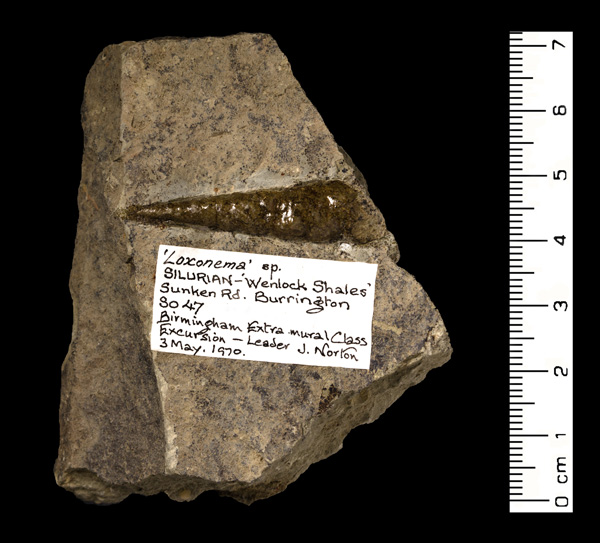 'Loxonema' sp.
SILURIAN-'Wenlock Shales'
Sunken Rd. Burrington
SO 47
Birmingham Extra mural Class
Excursion – Leader J. Norton
3 May. 1970.
7
6
5
4
3
2
1
0 cm